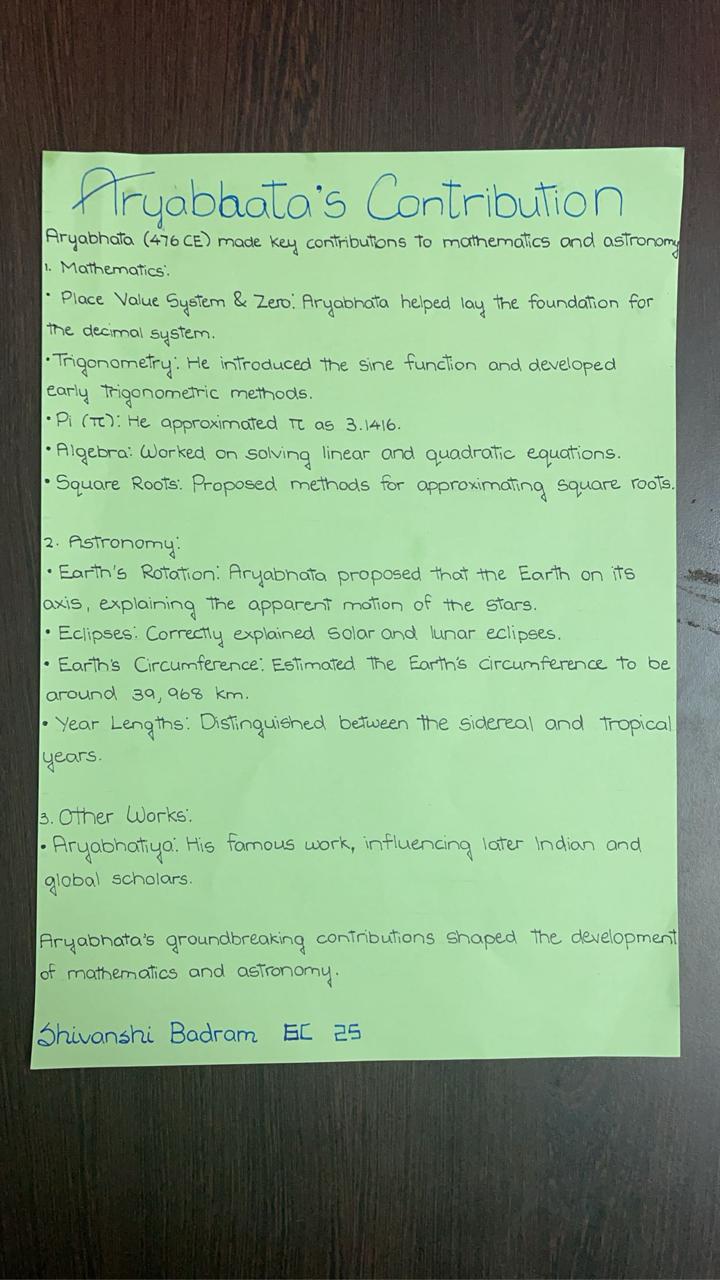 Aryabhata's Contribution
Aryabhata (476 CE) made key contributions to mathematics and astronomy
1. Mathematics:
• Place Value System & Zero: Aryabhata helped lay the foundation for
the decimal system.
• Trigonometry: He introduced the sine function and developed
early trigonometric methods.
• Pi (π): He approximated π as 3.1416.
• Algebra: Worked on solving linear and quadratic equations.
• Square Roots: Proposed methods for approximating square roots.
2. Astronomy:
• Earth's Rotation: Aryabhata proposed that the Earth on its
axis, explaining the apparent motion of the stars.
• Eclipses: Correctly explained solar and lunar eclipses.
• Earth's Circumference: Estimated the Earth's circumference to be
around 39,968 km.
• Year Lengths: Distinguished between the sidereal and tropical
years.
3. Other Works:
• Aryabhatiya: His famous work, influencing later Indian and
global scholars.
Aryabhata's groundbreaking contributions shaped the development
of mathematics and astronomy.
Shivanshi Badram 25